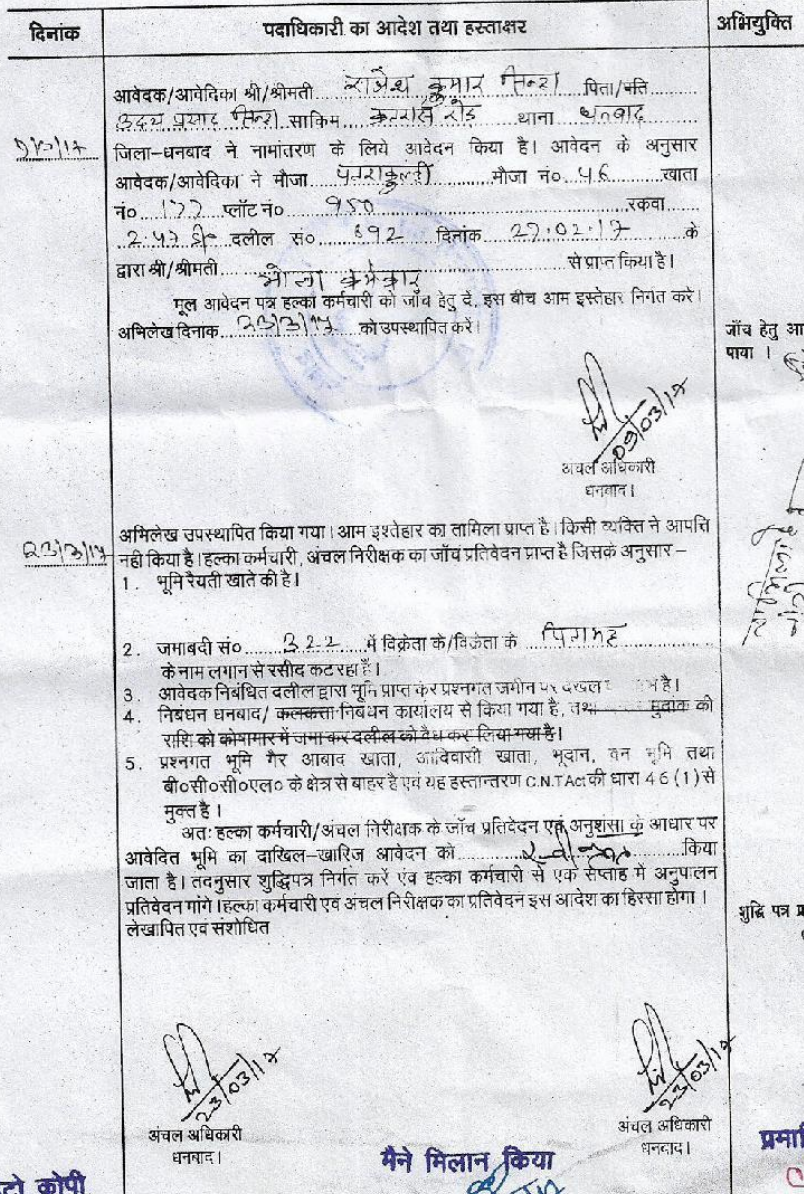 दिनांक
पदाधिकारी का आदेश तथा हस्ताक्षर
अभियुक्ति
आवेदक/आवेदिका श्री/श्रीमती राजेश कुमार सिन्हा पिता/पति
उदय प्रसाद सिन्हा साकिम रोड थाना धनबाद
जिला-धनबाद ने नामांतरण के लिये आवेदन किया है। आवेदन के अनुसार
आवेदक/आवेदिका ने मौजा मौजा नं० 46 खाता
नं० 177 प्लॉट नं० 950 रकवा
2.47 दलील सं० 892 दिनांक 27.02.17 के
द्वारा श्री/श्रीमती भोला कर्मकार से प्राप्त किया है।
मूल आवेदन पत्र हल्का कर्मचारी को जाँच हेतु दें, इस बीच आम इस्तेहार निर्गत करे।
अभिलेख दिनाक 23/3/17 को उपस्थापित करें।
जाँच हेतु आ
पाया ।
09/03/17
अंचल अधिकारी
धनबाद।
23/3/17
अभिलेख उपस्थापित किया गया। आम इश्तेहार का तामिला प्राप्त है। किसी व्यक्ति ने आपत्ति
नही किया है। हल्का कर्मचारी, अंचल निरीक्षक का जाँच प्रतिवेदन प्राप्त है जिसके अनुसार –
1. भूमि रैयती खाते की है।
2. जमाबदी सं० 322 में विक्रेता के/विक्रेता के पितामह
के नाम लगान से रसीद कट रहा है।
3. आवेदक निबंधित दलील द्वारा भूमि प्राप्त कर प्रश्नगत जमीन पर दखल है।
4. निबंधन धनबाद/ कलकत्ता निबंधन कार्यालय से किया गया है, तथा मुद्रांक की
राशि को कोषागार में जमा कर दलील को वैध कर लिया गया है।
5. प्रश्नगत भूमि गैर आबाद खाता, आदिवासी खाता, भूदान, वन भूमि तथा
बी०सी०सी०एल० के क्षेत्र से बाहर है एवं यह हस्तान्तरण C.N.T Act की धारा 46 (1) से
मुक्त है।
अतः हल्का कर्मचारी/अंचल निरीक्षक के जाँच प्रतिवेदन एवं अनुशंसा के आधार पर
आवेदित भूमि का दाखिल-खारिज आवेदन को स्वीकृत किया
जाता है। तदनुसार शुद्धिपत्र निर्गत करें एंव हल्का कर्मचारी से एक सप्ताह मे अनुपालन
प्रतिवेदन मांगे। हल्का कर्मचारी एवं अंचल निरीक्षक का प्रतिवेदन इस आदेश का हिस्सा होगा।
लेखापित एवं संशोधित
शुद्धि पत्र प्र
23/03/17
23/03/17
अंचल अधिकारी
धनबाद।
अंचल अधिकारी
धनबाद।
मैने मिलान किया
टो कोपी